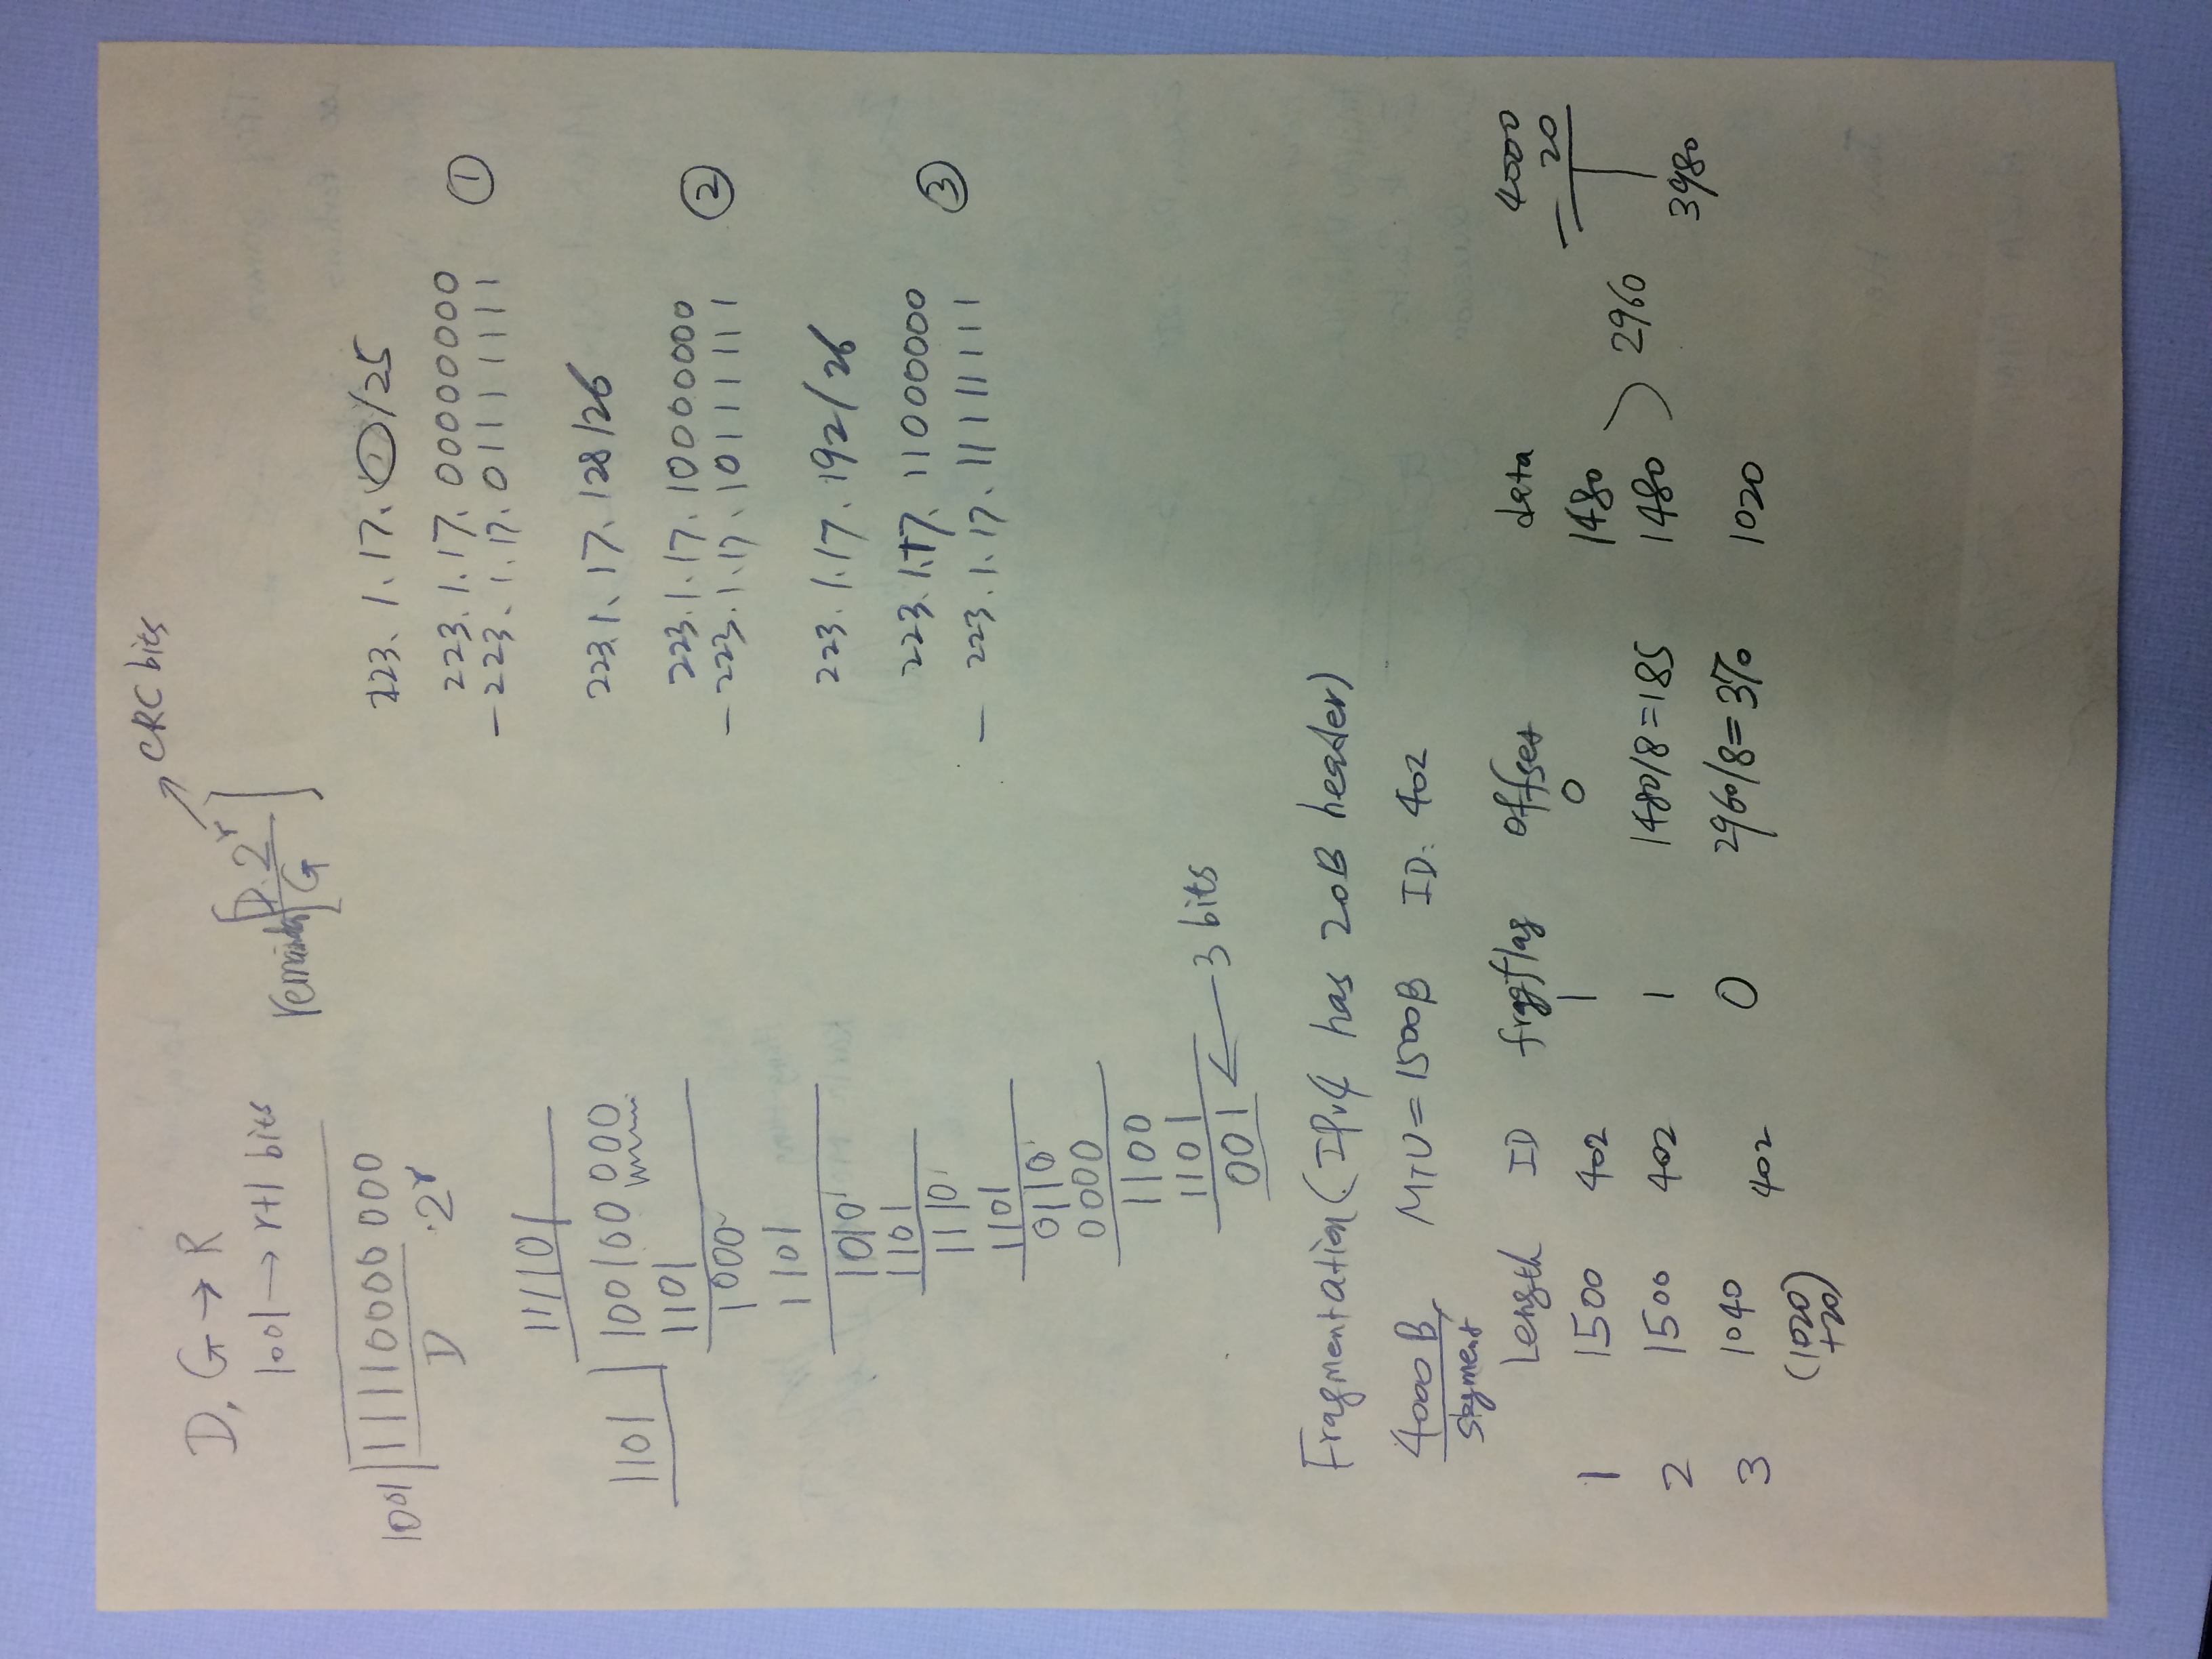 D, G → R
1001 → r+1 bits
CRC bits
remainder [D.2^r / G]
1001 11110000 000
D .2^r
111101
1101 100100 000
1101
1000
1101
1010
1101
1110
1101
0110
0000
1100
1101
001 ← 3 bits
223.1.17. /25
223.1.17.00000000
- 223.1.17.01111111 ①
223.1.17.128/26
223.1.17.10000000
- 223.1.17.10111111 ②
223.1.17.192/26
223.1.17.11000000
- 223.1.17.11111111 ③
Fragmentation (IPv4 has 20B header)
4000 B, MTU = 1500B ID: 402
segment
Length ID fragflag offset data
1 1500 402 1 0 1480
2 1500 402 1 1480/8=185 1480
3 1040 402 0 2960/8=370 1020
(1020
+20)
2960
4000
- 20
3980